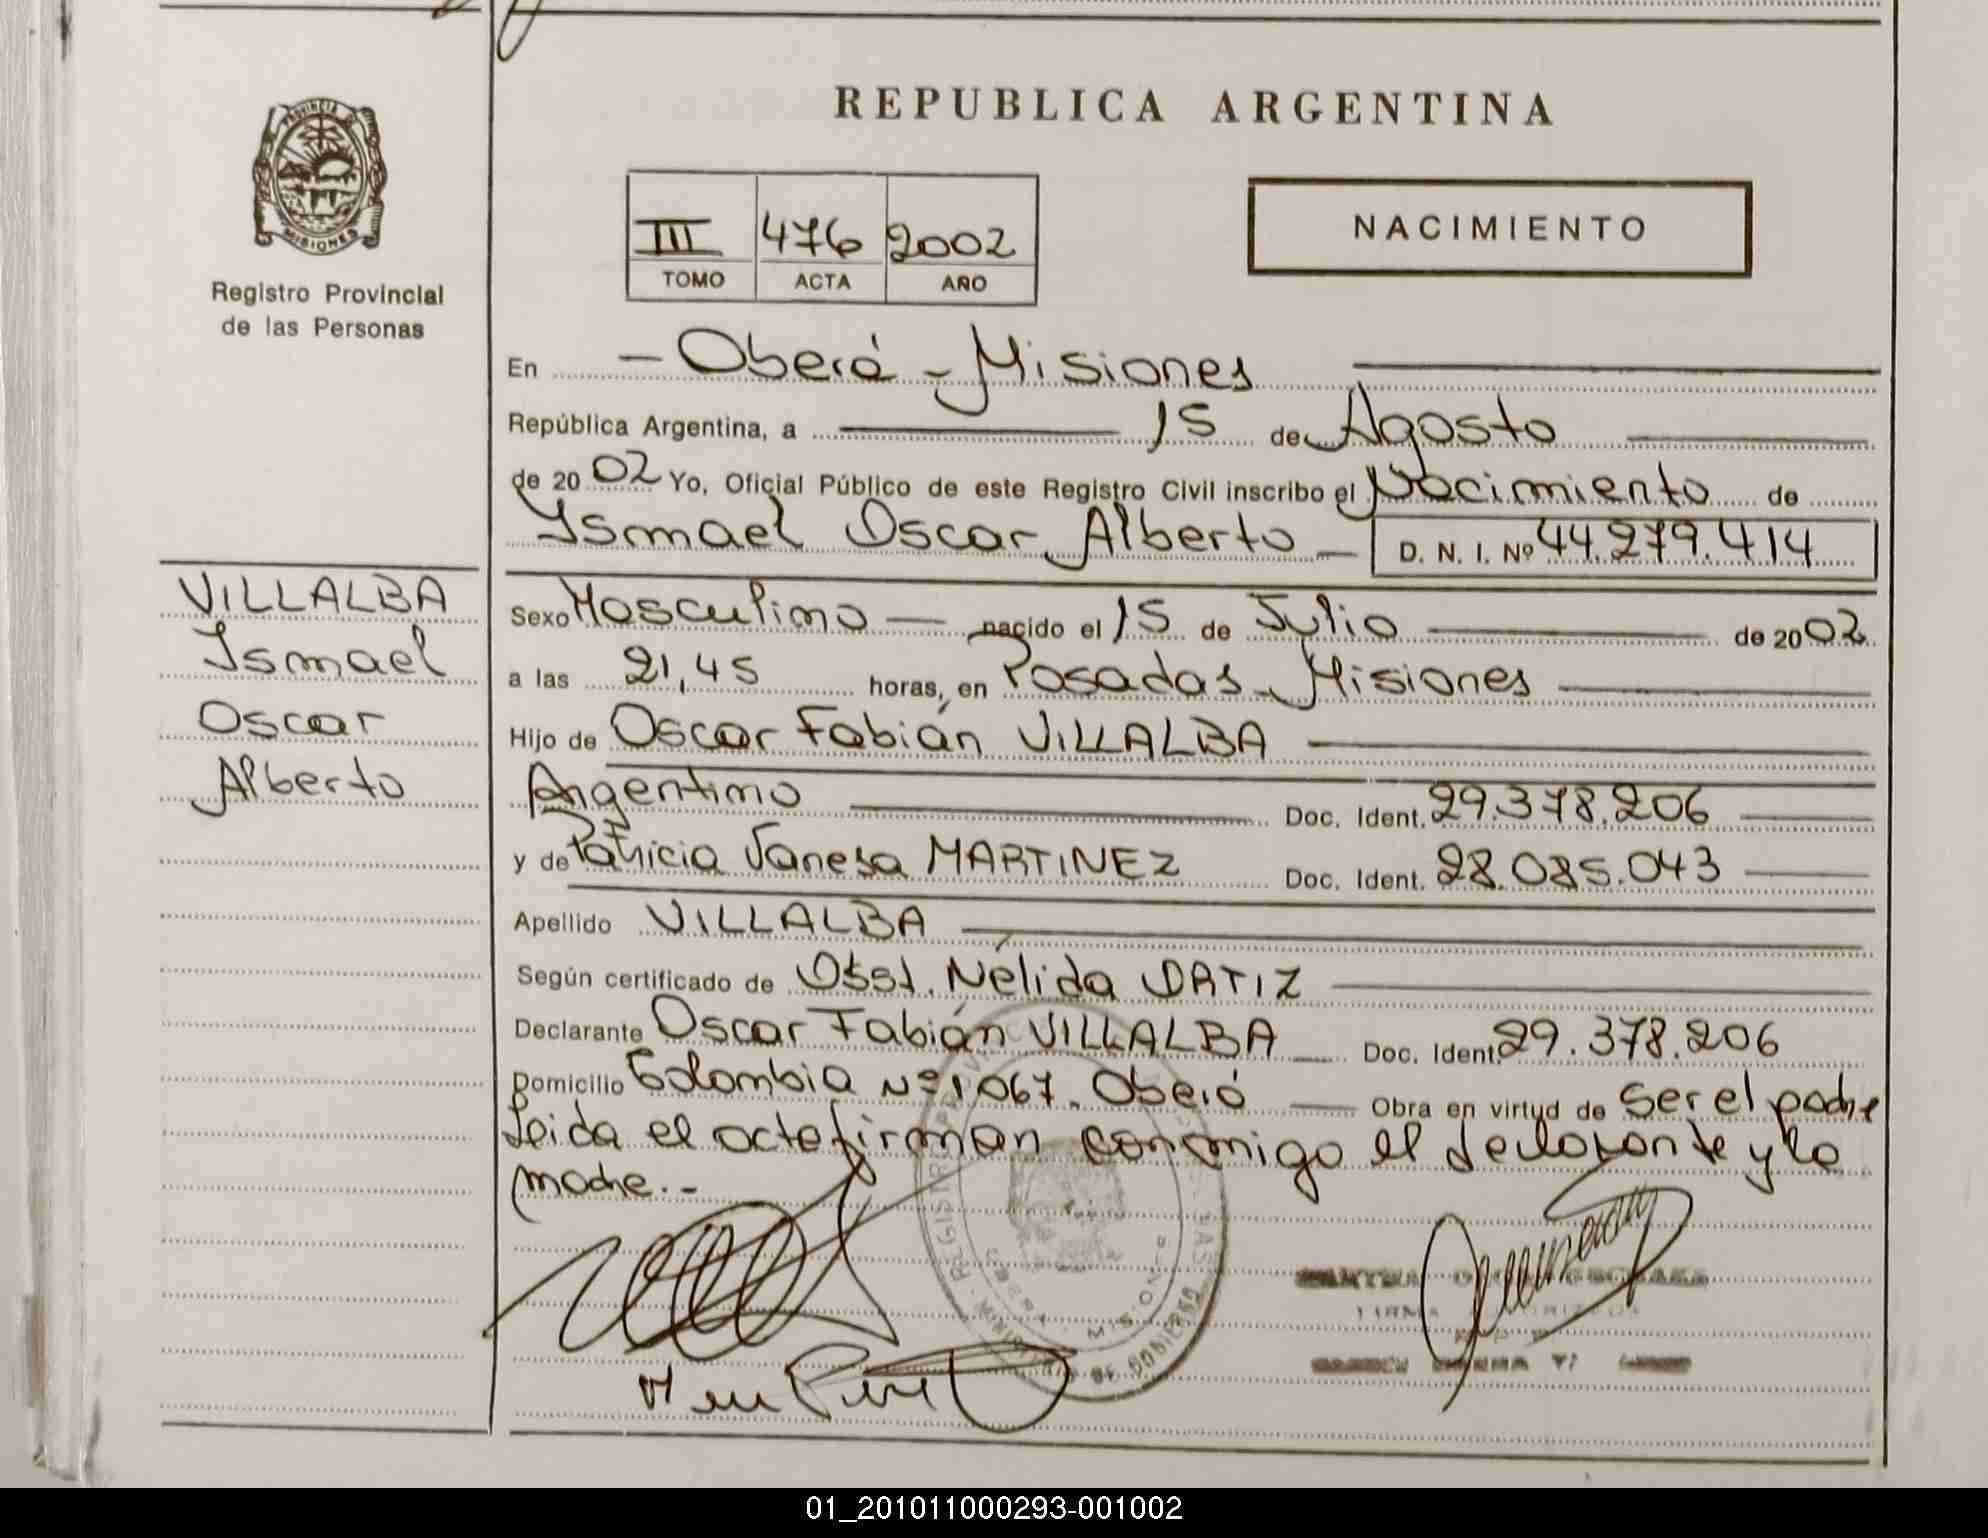 REPUBLICA ARGENTINA
PROVINCIA DE
MISIONES
Registro Provincial
de las Personas
III 476 2002
TOMO ACTA AÑO
NACIMIENTO
En - Oberá - Misiones
República Argentina, a 15 de Agosto
de 2002 Yo, Oficial Público de este Registro Civil inscribo el Nacimiento de
Ismael Oscar Alberto - D. N. I. Nº 44.279.414
VILLALBA
Ismael
Oscar
Alberto
Sexo Masculino - nacido el 15 de Julio de 2002
a las 21,45 horas, en Posadas - Misiones
Hijo de Oscar Fabián VILLALBA
Argentino Doc. Ident. 29.378.206
y de Patricia Vanesa MARTINEZ Doc. Ident. 28.085.043
Apellido VILLALBA
Según certificado de Obst. Nélida ORTIZ
Declarante Oscar Fabián VILLALBA Doc. Ident. 29.378.206
Domicilio Colombia Nº 1067. Oberá Obra en virtud de ser el padre
Leida el acta firman conmigo el declarante y la
madre.-
MINISTERIO DE GOBIERNO
MISIONES
01_201011000293-001002